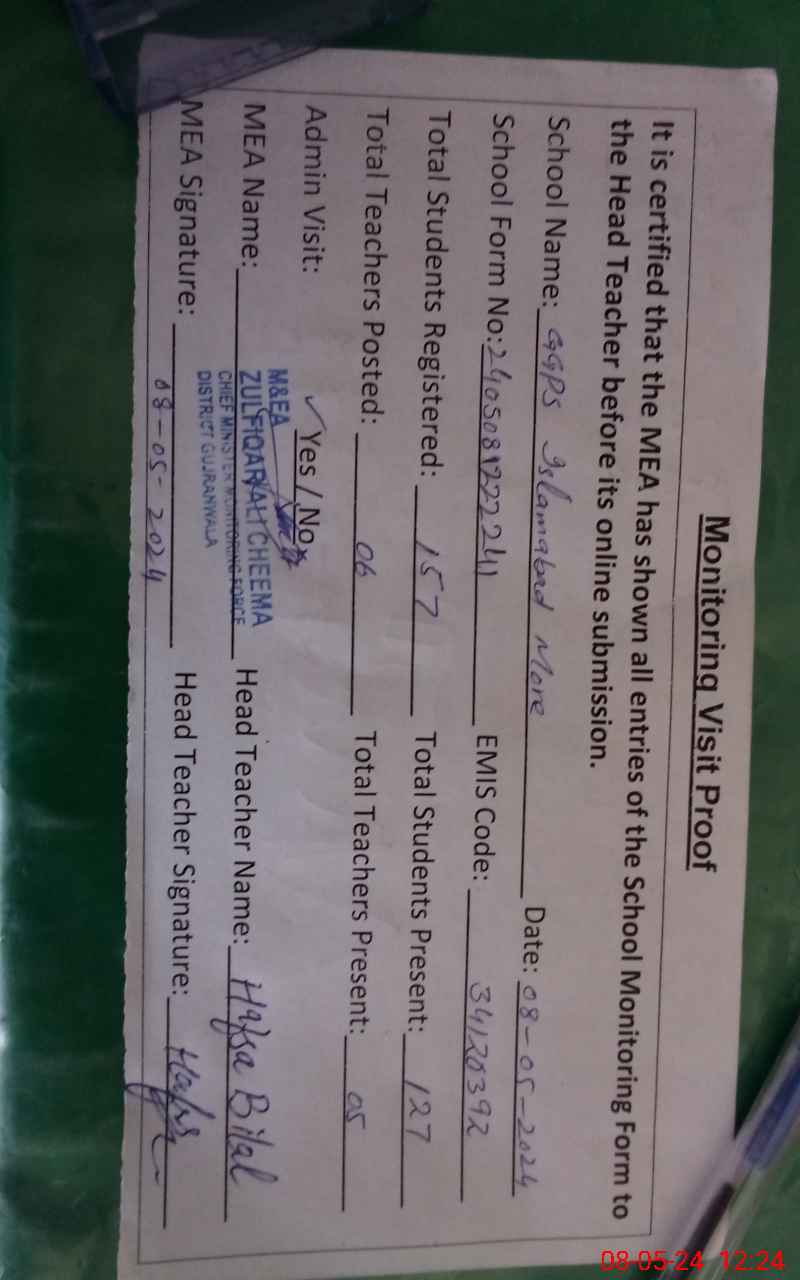 Monitoring Visit Proof
It is certified that the MEA has shown all entries of the School Monitoring Form to
the Head Teacher before its online submission.
School Name: GGPS Islamabad More Date: 08-05-2024
School Form No: 2405081222241 EMIS Code: 34120392
Total Students Registered: 157 Total Students Present: 127
Total Teachers Posted: 06 Total Teachers Present: 05
Admin Visit: ✓ Yes / No
M&EA
MEA Name: ZULFIQAR ALI CHEEMA Head Teacher Name: Hafsa Bilal
CHIEF MINISTER MONITORING FORCE
DISTRICT GUJRANWALA
MEA Signature: Head Teacher Signature: Hafsa
08-05-2024
08-05-24 12:24